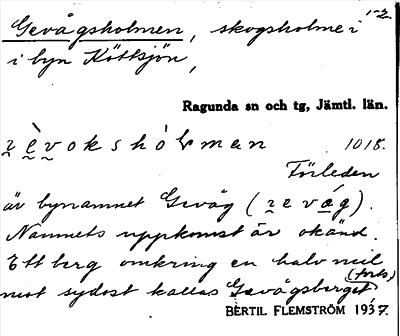 Gevågsholmen, skogsholme i
1-2
i byn Köttsjön,
Ragunda sn och tg, Jämtl. län.
ʒèvokshólman 1018.
Förleden
är bynamnet Gevåg (ʒevǽg).
Namnets uppkomst är okänd.
Ett berg omkring en halv mil
mot sydost kallas Gevågsberget
(forts)
BERTIL FLEMSTRÖM 1937.